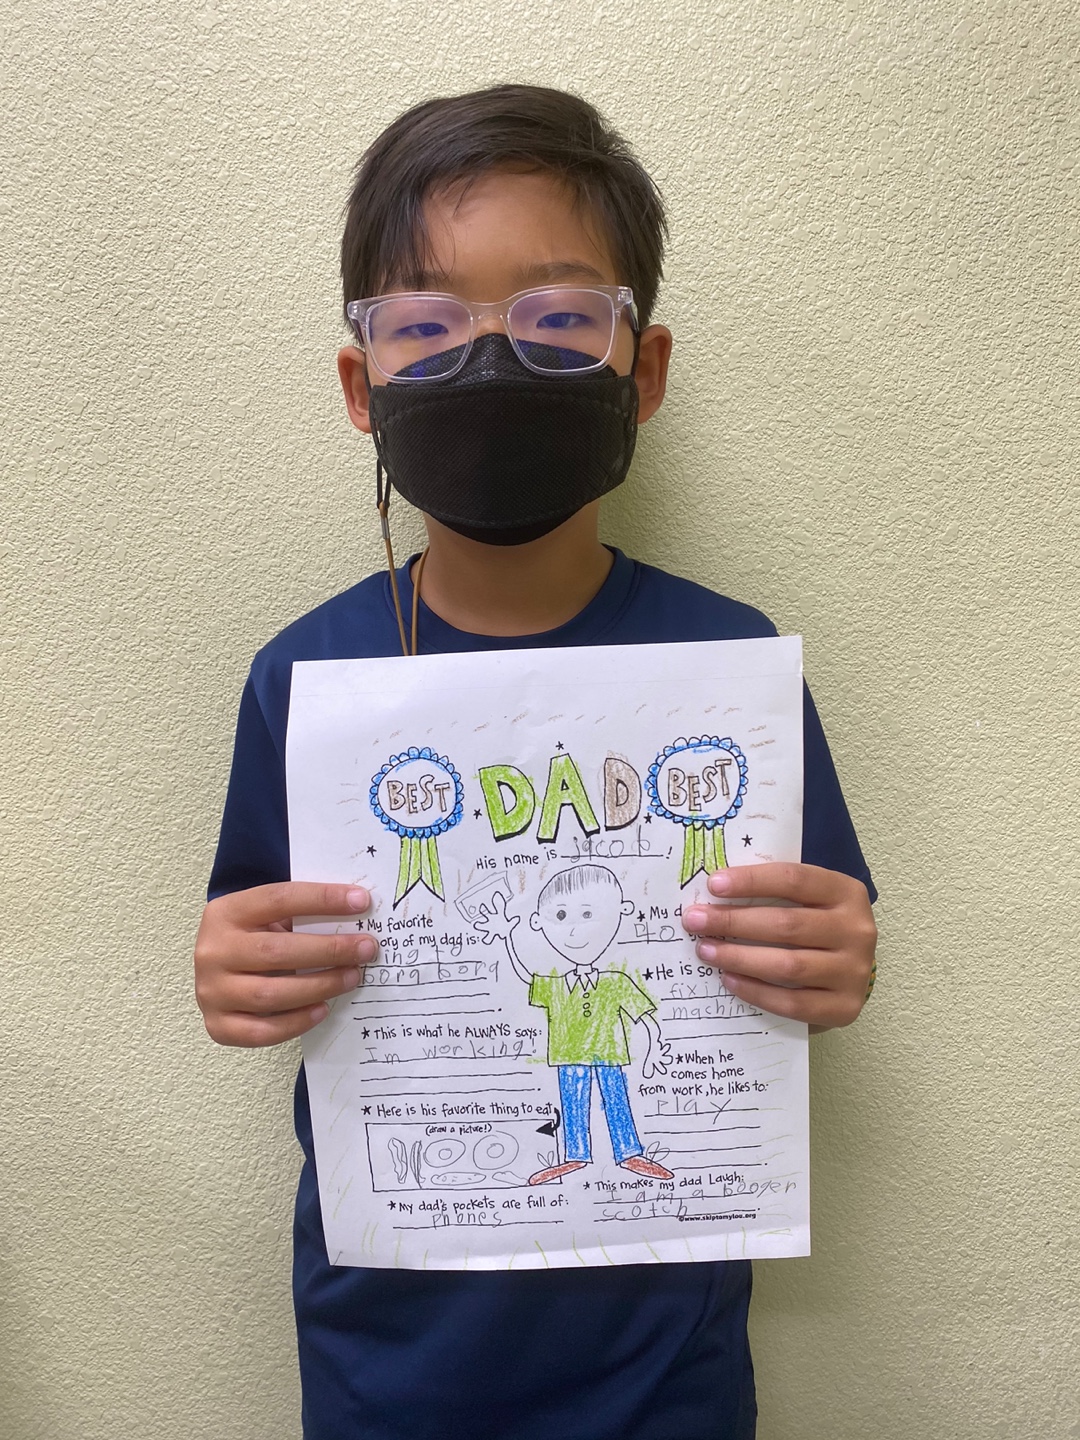 BEST
DAD
BEST
His name is jacob!
★My favorite
ory of my dad is:
ing
borg borg
★This is what he ALWAYS says:
Im working!
★Here is his favorite thing to eat
(draw a picture!)
★My dad's pockets are full of:
Phones
★My d
40
★He is so
fixin
machins
★When he
comes home
from work, he likes to:
Play
★This makes my dad Laugh:
I am a booger
scotch
©www.skiptomylou.org